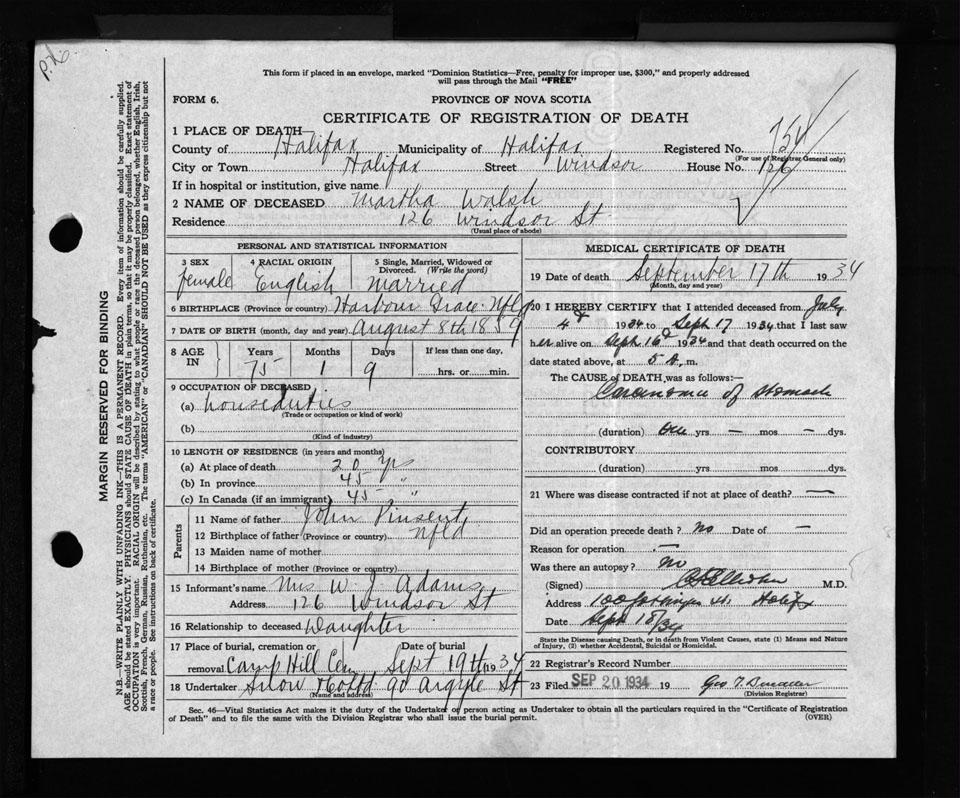 P.H.
This form if placed in an envelope, marked "Dominion Statistics—Free, penalty for improper use, $300," and properly addressed
will pass through the Mail "FREE"
FORM 6.
PROVINCE OF NOVA SCOTIA
CERTIFICATE OF REGISTRATION OF DEATH
1 PLACE OF DEATH—
County of Halifax Municipality of Halifax Registered No. 754
(For use of Registrar General only)
City or Town Halifax Street Windsor House No. 126
If in hospital or institution, give name
2 NAME OF DECEASED Martha Walsh
Residence 126 Windsor St
(Usual place of abode)
PERSONAL AND STATISTICAL INFORMATION
3 SEX 4 RACIAL ORIGIN 5 Single, Married, Widowed or Divorced. (Write the word)
female English Married
6 BIRTHPLACE (Province or country) Harbour Grace Nfld
7 DATE OF BIRTH (month, day and year) August 8th 1859
8 AGE IN Years Months Days If less than one day,
75 1 9 hrs. or min.
9 OCCUPATION OF DECEASED
(a) house duties
(Trade or occupation or kind of work)
(b)
(Kind of industry)
10 LENGTH OF RESIDENCE (in years and months)
(a) At place of death 20 yrs
(b) In province 45 "
(c) In Canada (if an immigrant) 45 "
Parents
11 Name of father John Pinsent
12 Birthplace of father (Province or country) Nfld
13 Maiden name of mother
14 Birthplace of mother (Province or country)
15 Informant's name Mrs W. J. Adams
Address 126 Windsor St
16 Relationship to deceased Daughter
17 Place of burial, cremation or removal Date of burial
Camp Hill Cem Sept 19th 1934
18 Undertaker Snow & Co Ltd 90 Argyle St
(Name and address)
MEDICAL CERTIFICATE OF DEATH
19 Date of death September 17th 1934
(Month, day and year)
20 I HEREBY CERTIFY that I attended deceased from July
4th 1934 to Sept 17 1934 that I last saw
her alive on Sept 16 1934 and that death occurred on the
date stated above, at 5 A. m.
The CAUSE OF DEATH, was as follows:—
Carcinoma of Stomach
(duration) One yrs — mos — dys.
CONTRIBUTORY
(duration) yrs. mos. dys.
21 Where was disease contracted if not at place of death? —
Did an operation precede death? No Date of —
Reason for operation —
Was there an autopsy? No
(Signed) M.D.
Address Halifax
Date Sept 18/34
State the Disease causing Death, or in death from Violent Causes, state (1) Means and Nature
of Injury, (2) whether Accidental, Suicidal or Homicidal.
22 Registrar's Record Number
23 Filed SEP 20 1934 19 Geo T.
(Division Registrar)
Sec. 46—Vital Statistics Act makes it the duty of the Undertaker or person acting as Undertaker to obtain all the particulars required in the "Certificate of Registration
of Death" and to file the same with the Division Registrar who shall issue the burial permit.
(OVER)
MARGIN RESERVED FOR BINDING
N.B.—WRITE PLAINLY WITH UNFADING INK—THIS IS A PERMANENT RECORD. Every item of information should be carefully supplied.
AGE should be stated EXACTLY. PHYSICIANS should STATE CAUSE OF DEATH in plain terms, so that it may be properly classified. Exact statement of
OCCUPATION is very important. RACIAL ORIGIN will be described by stating to what people or race the deceased person belonged, whether English, Irish,
Scottish, French, German, Russian, Ruthenian, etc. The terms "AMERICAN" or "CANADIAN" SHOULD NOT BE USED as they express citizenship but not
a race or people. See instructions on back of certificate.